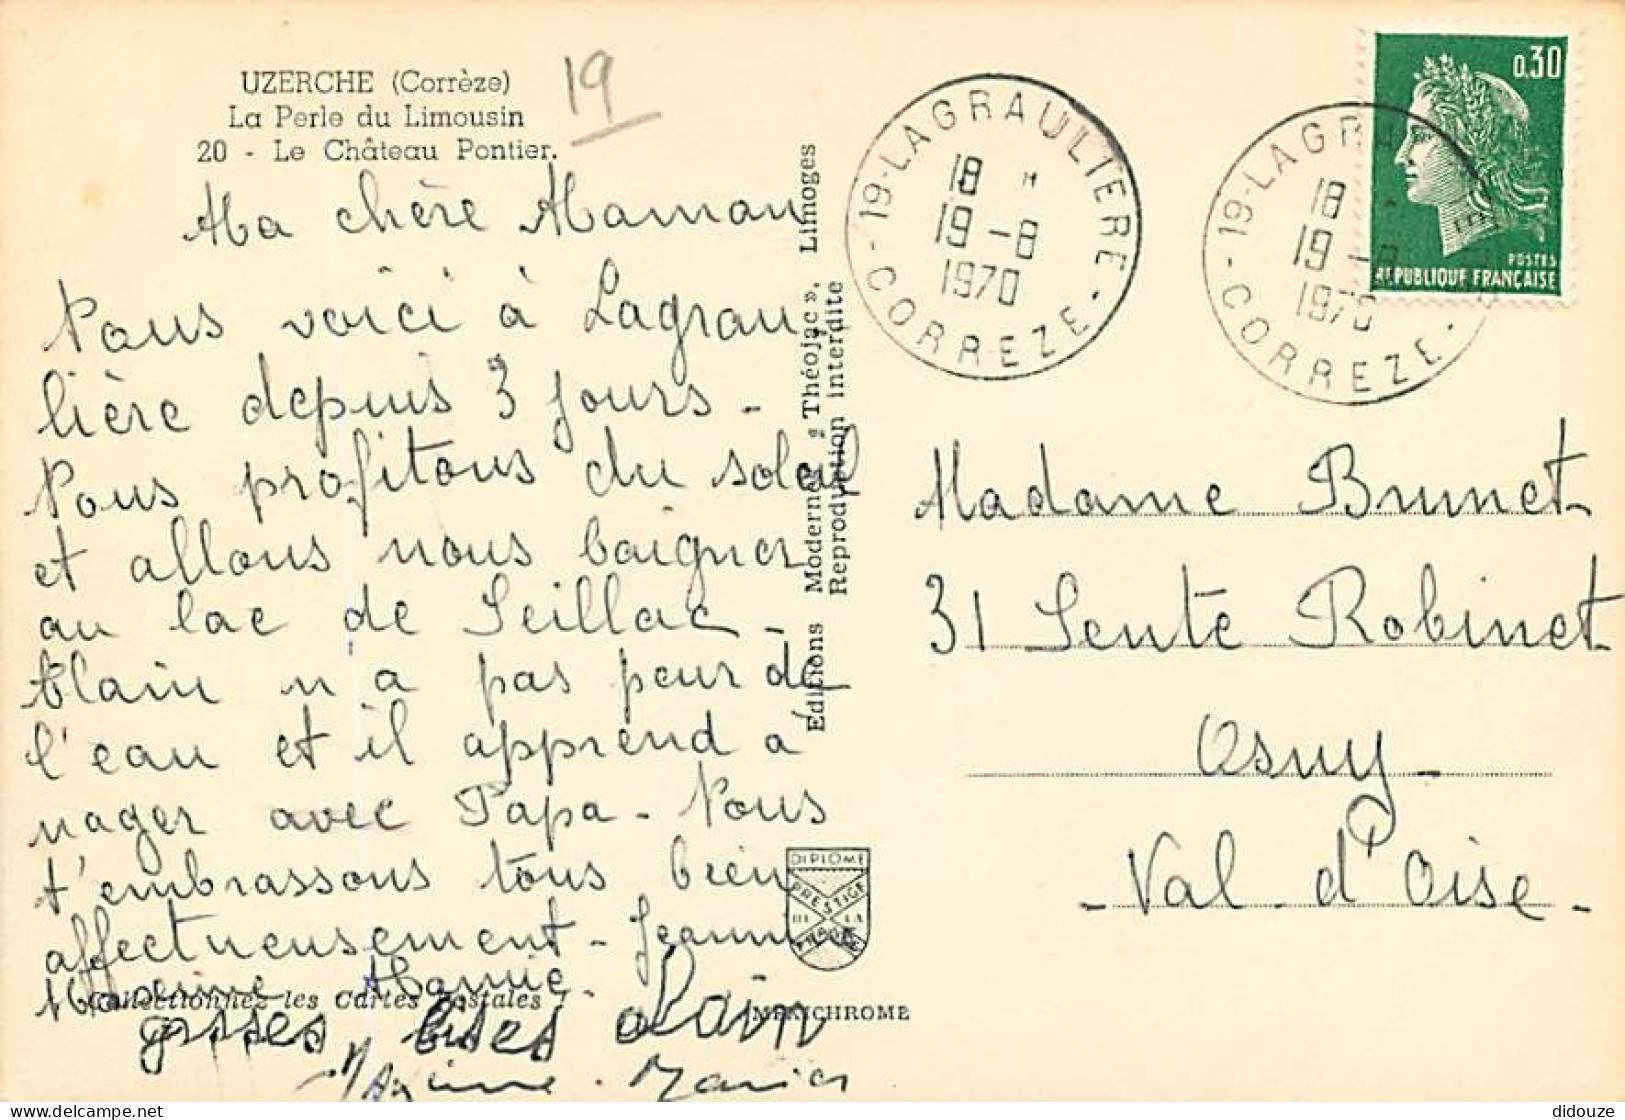 UZERCHE (Corrèze)
La Perle du Limousin
20 - Le Château Pontier.
19
Ma chère Maman
Nous voici à Lagrau
lière depuis 3 jours -
Nous profitons du soleil
et allons nous baigner
au lac de Seillac -
Alain n a pas peur de
l'eau et il apprend à
nager avec Papa - Nous
t'embrassons tous bien
affectueusement - Jeannine
Mamie
grosses bises alain
Collectionnez les Cartes Postales !
Editions Modernes « Théojac », Limoges
Reproduction interdite
DIPLOME
PRESTIGE
DE LA
FRANCE
MEXICHROME
19-LAGRAULIERE
18 H
19 -8
1970
- CORREZE -
19-LAGRAU
18
19 -8
1970
- CORREZE -
0,30
POSTES
REPUBLIQUE FRANÇAISE
Madame Brunet
31 Sente Robinet
Osny -
- Val d'Oise -
didouze